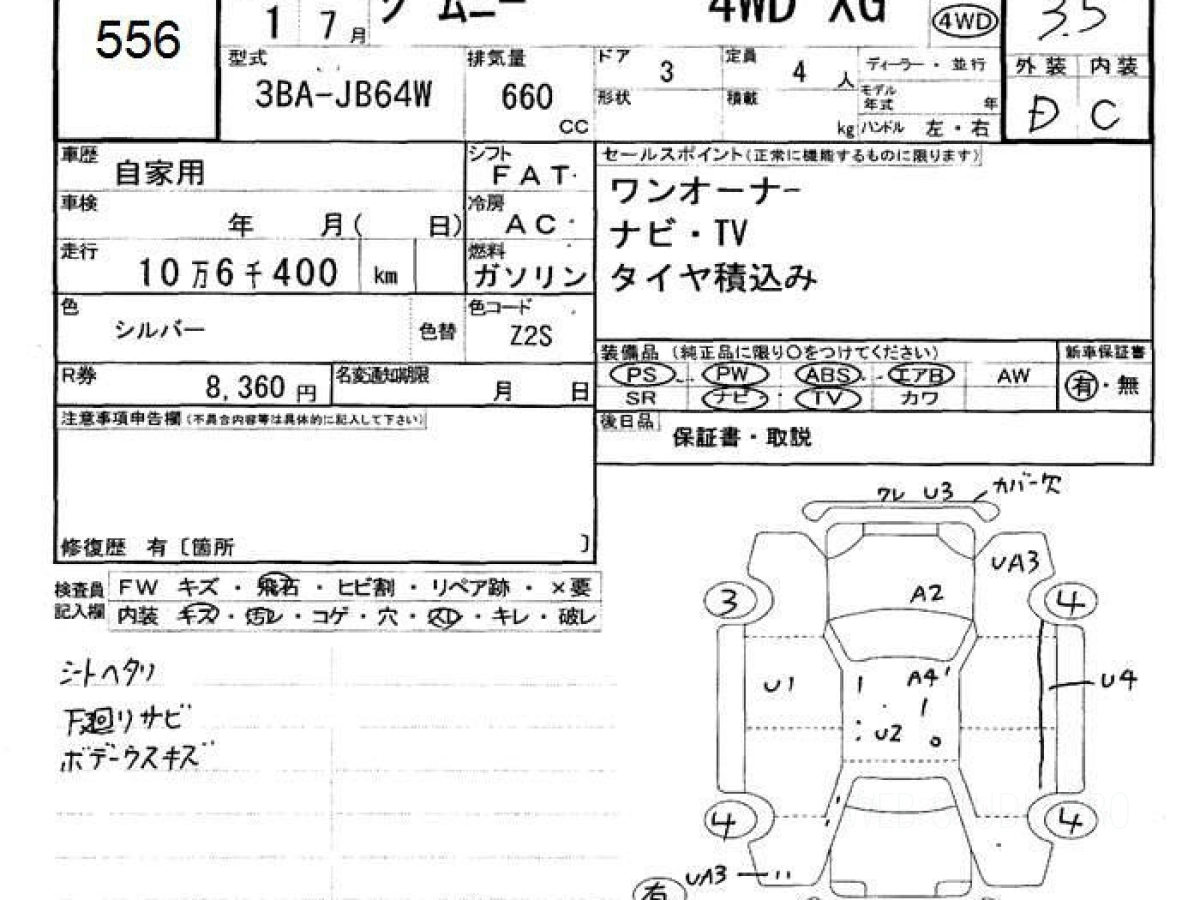 556
1 7 月
ジムニー
4WD XG
4WD
3.5
型式
3BA-JB64W
排気量
660
CC
ドア
3
定員
4 人
形状
積載
kg
ディーラー・並行
モデル年式
年
ハンドル 左・右
外装 内装
D C
車歴
自家用
シフト
FAT
車検
年 月( 日)
冷房
AC
走行
10万6千400 km
燃料
ガソリン
色
シルバー
色替
色コード
Z2S
R券
8,360 円
名変通知期限
月 日
セールスポイント(正常に機能するものに限ります)
ワンオーナー
ナビ・TV
タイヤ積込み
装備品 (純正品に限り〇をつけてください)
新車保証書
PS PW ABS エアB AW
SR ナビ TV カワ
有・無
後日品
保証書・取説
注意事項申告欄(不具合内容等は具体的に記入して下さい)
修復歴 有〔箇所 〕
検査員記入欄
FW キズ・飛石・ヒビ割・リペア跡・×要
内装 キズ・汚レ・コゲ・穴・スレ・キレ・破レ
シートヘタリ
下廻りサビ
ボデーウスキズ
ワレ U3
カバー欠
UA3
A2
3
4
U1
A4
U4
U2
4
4
UA3
有